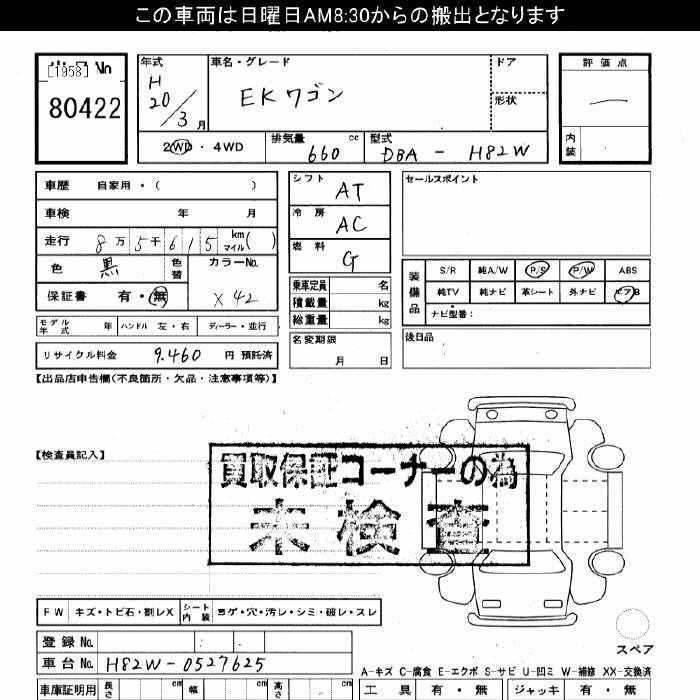 この車両は日曜日AM8:30からの搬出となります
[1958] No
80422
年式
H
20/3月
車名・グレード
EKワゴン
ドア
形状
2WD・4WD
排気量 660 cc
型式 DBA - H82W
評価点
—
内装
車歴 自家用・( )
車検 年 月
走行 8万5千615 km マイル( )
色 黒 色替
カラーNo.
X42
保証書 有・無
モデル年式 年 ハンドル 左・右 ディーラー・並行
リサイクル料金 9.460 円 預託済
シフト AT
冷房 AC
燃料 G
乗車定員 名
積載量 kg
総重量 kg
名変期限
月 日
セールスポイント
装備品
S/R 純A/W P/S P/W ABS
純TV 純ナビ 革シート 外ナビ エアB
ナビ型番:
後日品
【出品店申告欄(不良箇所・欠品・注意事項等)】
【検査員記入】
買取保証コーナーの為
未検査
FW キズ・トビ石・割レX シート内装 ヨゲ・穴・汚レ・シミ・破レ・スレ
登録No.
車台No. H82W-0527625
スペア
A-キズ C-腐食 E-エクボ S-サビ U-凹ミ W-補修 XX-交換済
車庫証明用 長さ cm 幅 cm 高さ cm
工具 有・無 ジャッキ 有・無